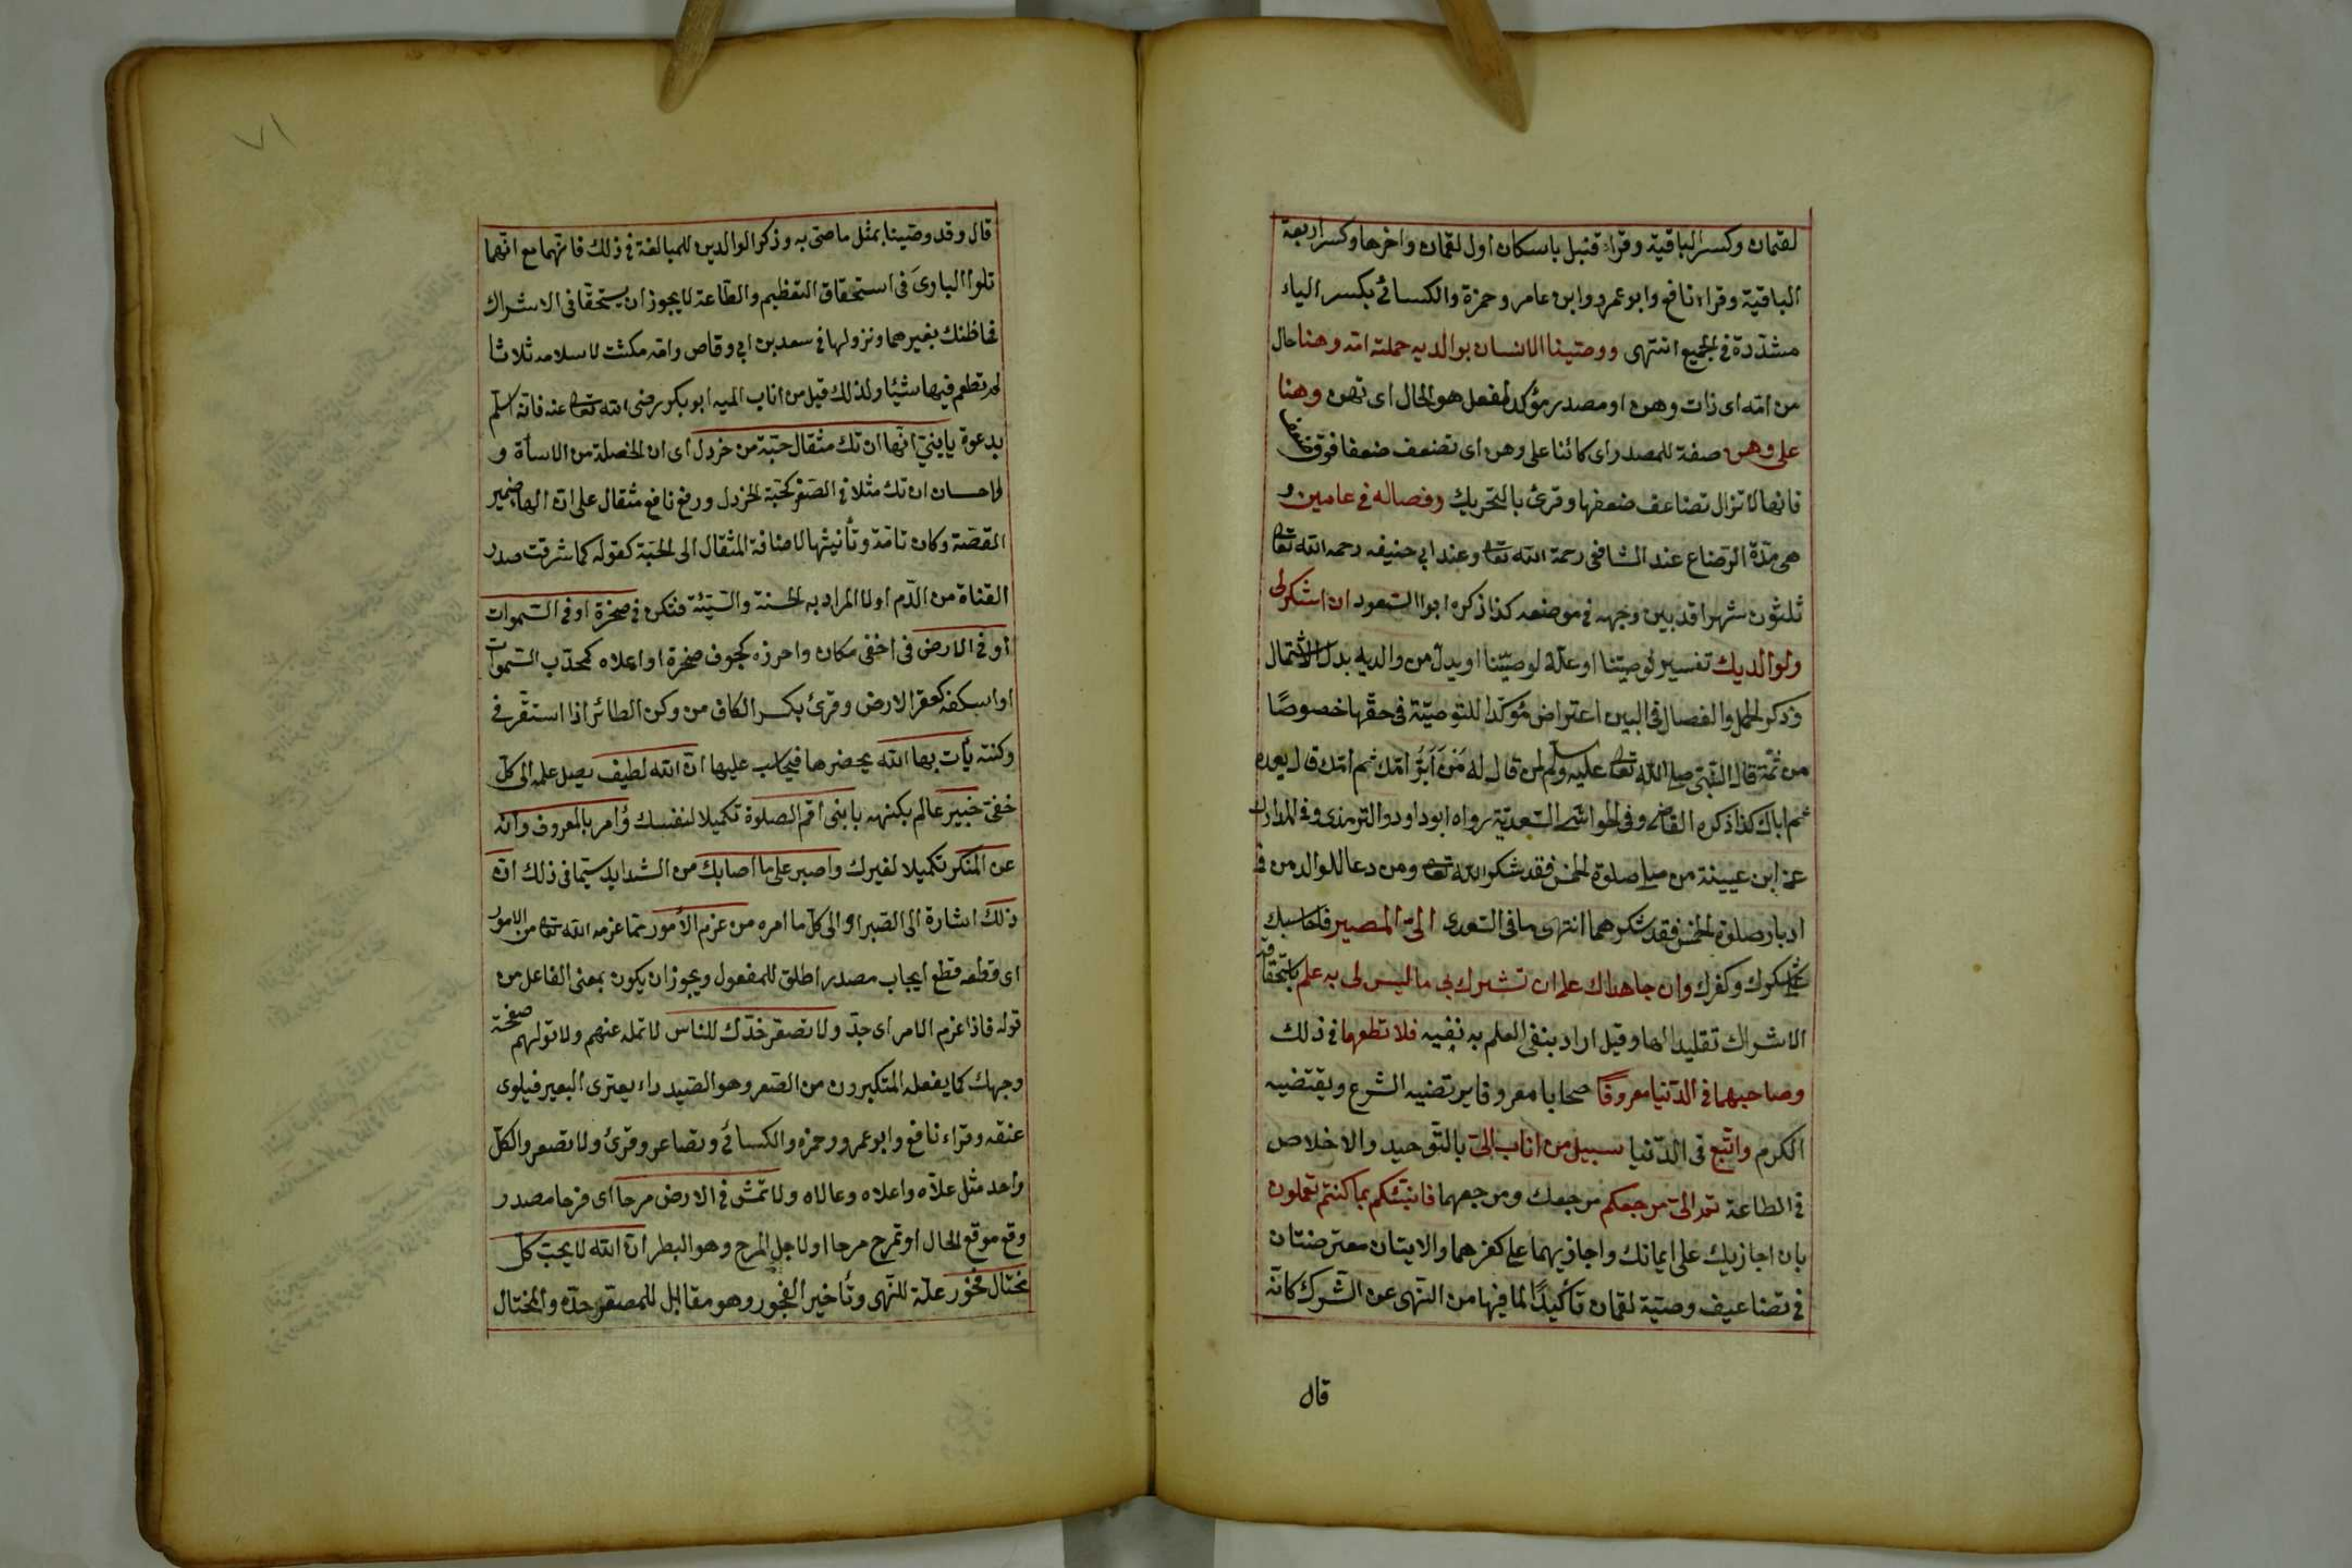 لقمان وكسر الباقية وقراء قنبل باسكان اول لقمان واخرها وكسر اربعة
الباقية وقراء نافع وابو عمرو وابن عامر وحمزة والكسائي بكسر الياء
مشددة في الجميع انتهى ووصينا الانسان بوالديه حملته امه وهنا حال
من امه اى ذات وهن او مصدر مؤكد لفعل هو الحال اى تهن وهنا
على وهن صفة للمصدر اى كائنا على وهن اى تضعف ضعفا فوق ضعف
فانها لا تزال تضاعف ضعفها وقرئ بالتحريك وفصاله في عامين و
هى مدة الرضاع عند الشافى رحمة الله تعا وعند ابي حنيفه رحمه الله تعا
ثلثون شهرا قد بين وجهه في موضعه كذا ذكره ابو السعود ان اشكر لى
ولوالديك تفسير لوصيتنا او علة لوصيتنا او بدل من والديه بدل الاشتمال
وذكر الحمل والفصال فى البين اعتراض مؤكدا للتوصية فى حقها خصوصا
من ثمة قال النبى صلى الله تعا عليه وسلم لمن قال له من ابر امك ثم امك قال بعده
ثم اباك كذا ذكره القاضى وفى الحواشى السعدية رواه ابو داود والترمذى وفى المدارك
عن ابن عيينة من صلى صلوة الخمس فقد شكر الله تعا ومن دعا للوالدين فى
ادبار صلوة الخمس فقد شكرهما انتهى ما فى السعدى الىّ المصير فاحاسبك
على شكرك وكفرك وان جاهداك على ان تشرك بى ما ليس لى به علم باستحقاقه
الاشراك تقليدا لهما وقيل اراد بنفى العلم به نفيه فلا تطعهما فى ذلك
وصاحبهما فى الدنيا معروفا صحابا معروفا يرتضيه الشرع ويقتضيه
الكرم واتبع فى الدنيا سبيل من اناب الىّ بالتوحيد والاخلاص
فى الطاعة ثم الىّ مرجعكم مرجعك ومرجعهما فانبئكم بما كنتم تعملون
بان اجازيك على ايمانك واجازيهما على كفرهما والايتان معترضتان
فى تضاعيف وصية لقمان تأكيدا لما فيها من النهى عن الشرك كانه
قال
٧١
قال وقد وصينا بمثل ما صى به وذكر الوالدين للمبالغة فى ذلك فانهما مع انهما
تلوا البارئ فى استحقاق التعظيم والطاعة لا يجوز ان يستحقا فى الاشراك
فما ظنك بغيرهما ونزولها فى سعد بن ابى وقاص وامه مكثت لاسلامه ثلاثا
لم تطعم فيها شيئا ولذلك قيل من اناب اليه ابو بكر رضى الله تعا عنه فانه اسلم
بدعوة يا بنى انها ان تك مثقال حبة من خردل اى ان الخصلة من الاسأة و
الاحسان ان تك مثلا فى الصغر كحبة الخردل ورفع نافع مثقال على ان الهاء ضمير
القصة وكان تامة وتأنيثها لاضافة المثقال الى الحبة كقوله كما شرقت صدر
القناة من الدم اولا المراد به الحسنة والسيئة فتكن فى صخرة او فى السموات
او فى الارض فى اخفى مكان واحرزه كجوف صخرة او اعلاه كمحدب السموات
او اسفله كمقعر الارض وقرئ بكسر الكاف من وكن الطائر اذا استقر فى
وكنته يأت بها الله يحضرها فيحاسب عليها ان الله لطيف يصل علمه الى كل
خفى خبير عالم بكنهه يا بنى اقم الصلوة تكميلا لنفسك وأمر بالمعروف وانه
عن المنكر تكميلا لغيرك واصبر على ما اصابك من الشدايد سيما فى ذلك ان
ذلك اشارة الى الصبر او الى كل ما امره من عزم الامور مما عزمه الله تعا من الامور
اى قطعه قطع ايجاب مصدر اطلق للمفعول ويجوز ان يكون بمعنى الفاعل من
قوله فاذا عزم الامر اى جد ولا تصعر خدك للناس لا تمله عنهم ولا تولهم صفحة
وجهك كما يفعله المتكبرون من الصعر وهو الصيد داء يعترى البعير فيلوى
عنقه وقراء نافع وابو عمرو وحمزه والكسائي وتصاعر وقرئ ولا تصعر والكل
واحد مثل علاه واعلاه وعالاه ولا تمش فى الارض مرحا اى فرحا مصدر
وقع موقع الحال او تمرح مرحا او لاجل المرح وهو البطر ان الله لا يحب كل
مختال فخور علة للنهى وتأخير الفخور وهو مقابل للمصعر خده والمختال